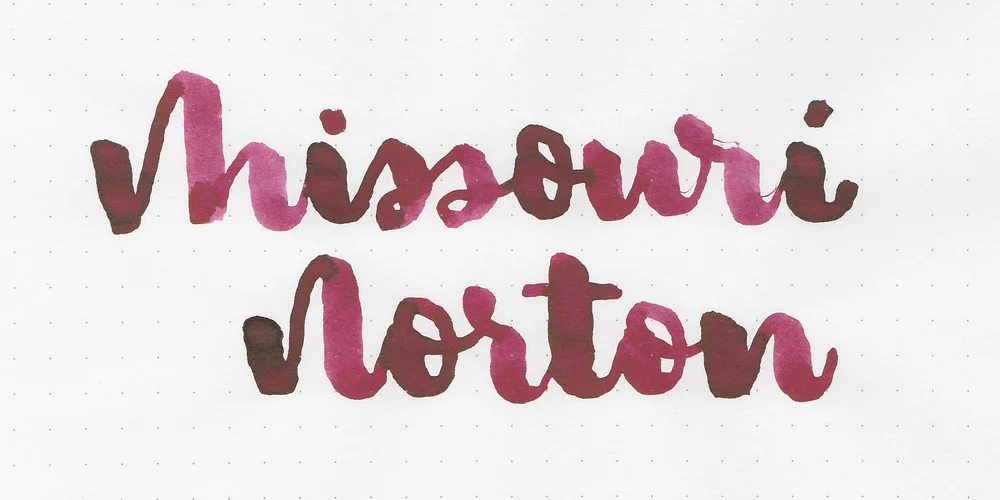 Missouri
Norton